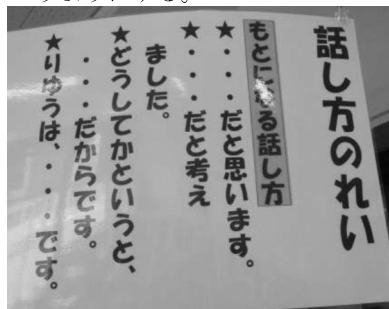 話し方のれい
もとになる話し方
★・・・だと思います。
★・・・だと考え
ました。
★どうしてかというと、
・・・だからです。
★りゆうは、・・・です。